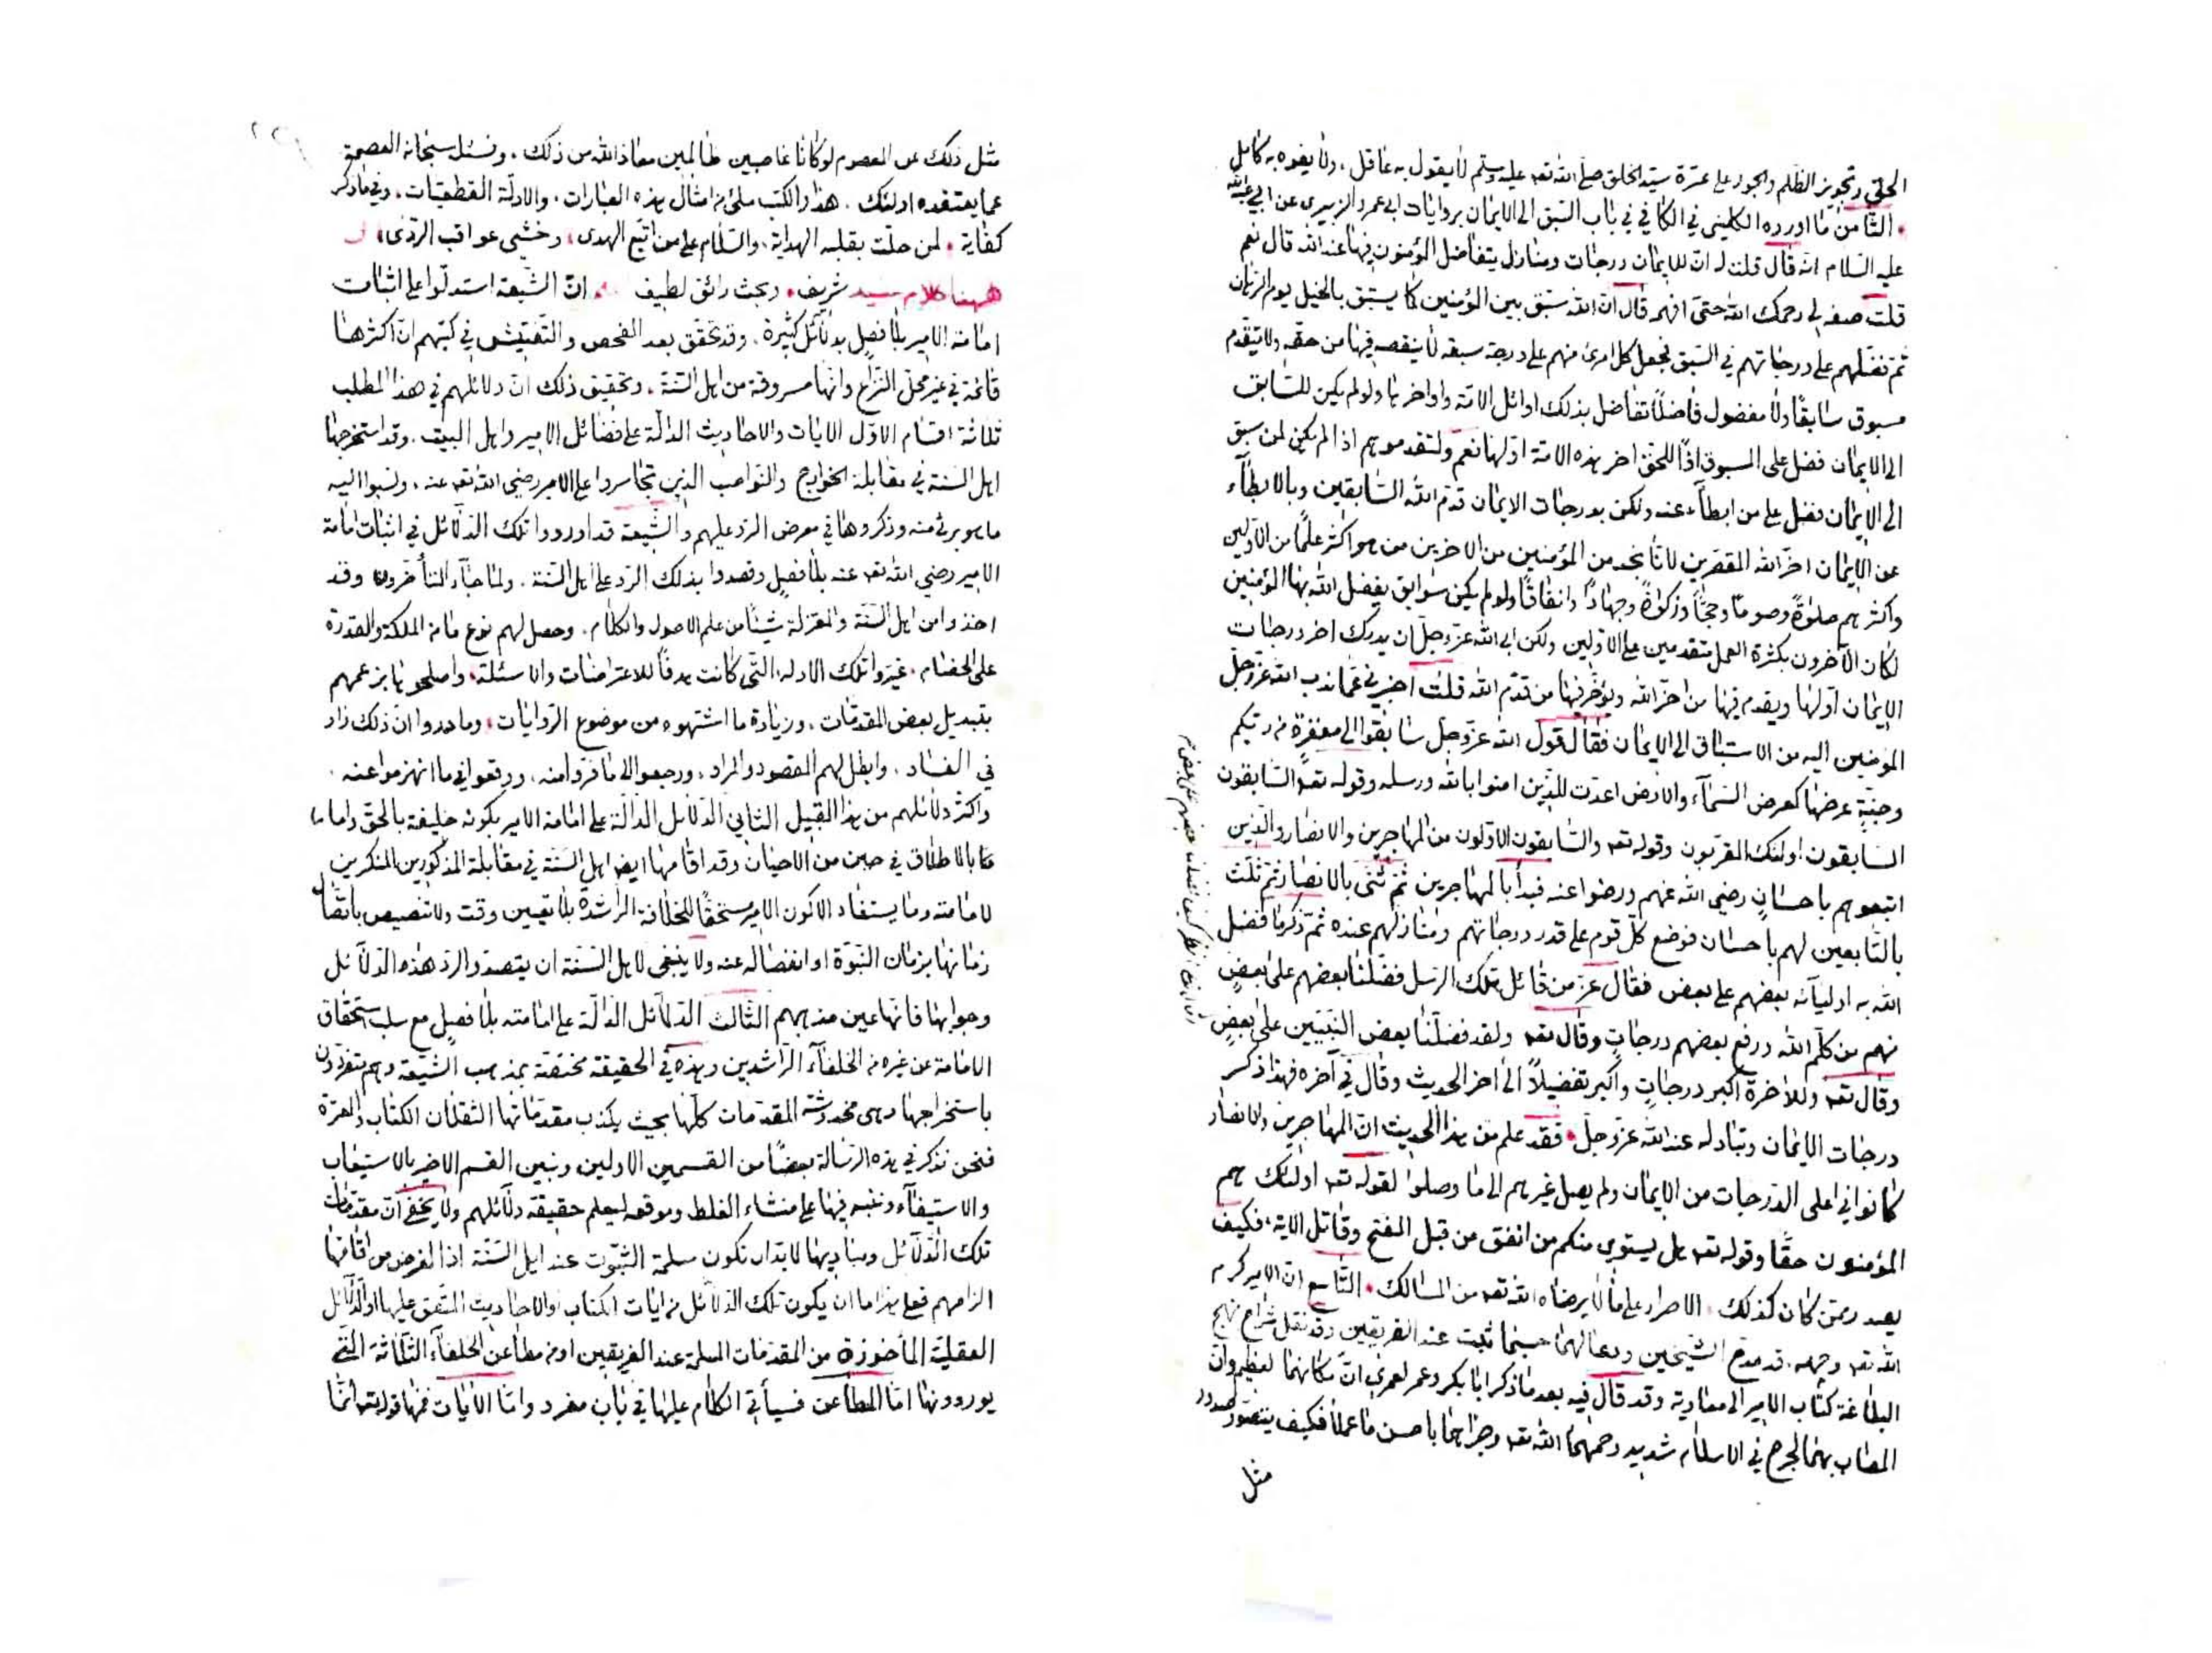 الحق وتجويز الظلم والجور على عترة سيد الخلق صلى الله تعه عليه وسلم لا يقول به عاقل، ولا يفوه به كامل
الثامن ما اورده الكليني في الكافي في باب السبق الى الايمان بروايات ابي عمرو الزبيري عن ابي عبدالله
عليه السلام انه قال قلت له ان للايمان درجات ومنازل يتفاضل المؤمنون فيها عند الله قال نعم
قلت صفه لي رحمك الله حتى افهمه قال ان الله سبق بين المؤمنين كما يستبق بالخيل يوم الرهان
ثم فضلهم على درجاتهم في السبق فجعل كل امرئ منهم على درجة سبقه لا ينقصه فيها من حقه ولا يتقدم
مسبوق سابقا ولا مفضول فاضلا تفاضل بذلك اوائل الامة واواخرها ولو لم يكن للسابق
الى الايمان فضل على المسبوق اذا للحق اخر هذه الامة اولها نعم ولتقدموهم اذا لم يكن لمن سبق
الى الايمان فضل على من ابطأ عنه ولكن بدرجات الايمان قدم الله السابقين وبالابطاء
عن الايمان اخر الله المقصرين لانا نجد من المؤمنين من الاخرين من هو اكثر عملا من الاولين
واكثرهم صلوة وصوما وحجا وزكوة وجهادا وانفاقا ولو لم يكن سوابق يفضل الله بها المؤمنين
لكان الآخرون بكثرة العمل متقدمين على الاولين ولكن ابى الله عز وجل ان يدرك اخر درجات
الايمان اولها ويقدم فيها من اخر الله ويؤخر فيها من قدم الله قلت اخبرني عما ندب الله عز وجل
المؤمنين اليه من الاستباق الى الايمان فقال قول الله عز وجل سابقوا الى مغفرة من ربكم
وجنة عرضها كعرض السماء والارض اعدت للذين امنوا بالله ورسله وقوله تعه السابقون
السابقون اولئك المقربون وقوله تعه والسابقون الاولون من المهاجرين والانصار والذين
اتبعوهم باحسان رضي الله عنهم ورضوا عنه فبدأ بالمهاجرين ثم ثنى بالانصار ثم ثلث
بالتابعين لهم باحسان فوضع كل قوم على قدر درجاتهم ومنازلهم عنده ثم ذكر ما فضل
الله به اوليائه بعضهم على بعض فقال عز من قائل تلك الرسل فضلنا بعضهم على بعض
منهم من كلم الله ورفع بعضهم درجات وقال تعه ولقد فضلنا بعض النبيين على بعض
وقال تعه وللاخرة اكبر درجات واكبر تفضيلا الى اخر الحديث وقال في آخره فهذا ذكر
درجات الايمان ومنازله عند الله عز وجل فقد علم من هذا الحديث ان المهاجرين والانصار
كانوا في اعلى الدرجات من الايمان ولم يصل غيرهم الى ما وصلوا لقوله تعه اولئك هم
المؤمنون حقا وقوله تعه هل يستوي منكم من انفق من قبل الفتح وقاتل الاية، فكيف
يصدر ممن كان كذلك الاصرار على ما لا يرضاه الله تعه من المسالك التاسع ان الامير كرم
الله تعه وجهه قد مدح الشيخين ودعا لهما حسبما ثبت عند الفريقين وقد نقل شراح نهج
البلاغة كتاب الامير الى معاوية وقد قال فيه بعد ما ذكر ابا بكر وعمر لعمري ان مكانهما لعظيم وان
المصاب بهما لجرح في الاسلام شديد رحمهما الله تعه وجزاهما باحسن ما عملا فكيف يتصور صدور
مثل
مثل ذلك عن المعصوم لو كانا غاصبين ظالمين معاذ الله من ذلك، ونسئل سبحانه العصمة
عما يعتقده اولئك. هذا والكتب ملئ من امثال هذه العبارات، والادلة القطعيات، وفيما ذكر
كفاية لمن حلت بقلبه الهداية، والسلام على من اتبع الهدى، وخشي عواقب الردى،
ههنا كلام شريف، وبحث رائق لطيف ان الشيعة استدلوا على اثبات
امامة الامير بلا فصل بدلائل كثيرة، وقد تحقق بعد الفحص والتفتيش في كتبهم ان اكثرها
قائمة في غير محل النزاع وانها مسروقة من اهل السنة، وتحقيق ذلك ان دلائلهم في هذا المطلب
ثلاثة اقسام الاول الايات والاحاديث الدالة على فضائل الامير واهل البيت، وقد استخرجها
اهل السنة في مقابلة الخوارج والنواصب الذين تجاسروا على الامير رضي الله تعه عنه، ونسبوا اليه
ما هو برئ منه وذكروها في معرض الرد عليهم والشيعة قد اوردوا تلك الدلائل في اثبات امامة
الامير رضي الله تعه عنه بلا فصل وقصدوا بذلك الرد على اهل السنة. ولما جاء المتأخرون وقد
اخذوا من اهل السنة والمعتزلة شيئا من علم الاصول والكلام، وحصل لهم نوع ما من الملكة والقدرة
على الخصام، غيروا تلك الادلة التي كانت هدفا للاعتراضات والاسئلة، واصلحوها بزعمهم
بتبديل بعض المقدمات، وزيادة ما اشتهوه من موضوع الروايات، وما دروا ان ذلك زاد
في الفساد، وابطل لهم المقصود والمراد، ورجعوا الى ما فروا منه، ووقعوا في ما انهزموا عنه.
واكثر دلائلهم من هذا القبيل الثاني الدلائل الدالة على امامة الامير بكونه خليفة بالحق واماما
بالاطلاق في حين من الاحيان وقد اقامها ايضا اهل السنة في مقابلة المذكورين المنكرين
لامامته وما يستفاد الا كون الامير مستحقا للخلافة الراشدة بلا تعيين وقت ولا تنصيص باتصال
زمانها بزمان النبوة او انفصاله عنه ولا ينبغي لاهل السنة ان يقصدوا لرد هذه الدلائل
وجوابها فانها عين مذهبهم الثالث الدلائل الدالة على امامته بلا فصل مع سلب استحقاق
الامامة عن غيره من الخلفاء الراشدين وهذه في الحقيقة مختصة بمذهب الشيعة وهم متفردون
باستخراجها وهي مخدوشة المقدمات كلها بحيث يكذب مقدماتها الثقلان الكتاب والعترة
فنحن نذكر في هذه الرسالة بعضا من القسمين الاولين ونبين القسم الاخير بالاستيعاب
والاستيفاء وننبه فيها على منشاء الغلط وموقعه ليعلم حقيقة دلائلهم ولا يخفى ان مقدمات
تلك الدلائل ومباديها لابد ان تكون مسلمة الثبوت عند اهل السنة اذ الغرض من اقامتها
الزامهم فعلى هذا اما ان يكون تلك الدلائل من ايات الكتاب او الاحاديث المتفق عليها او الدلائل
العقلية المأخوذة من المقدمات المسلمة عند الفريقين او من مطاعن الخلفاء الثلاثة التي
يوردونها اما المطاعن فسيأتي الكلام عليها في باب مفرد واما الايات فمنها قوله تعه انما